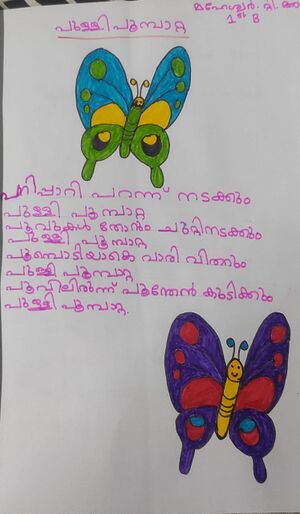 മഹേശ്വർ. റ്റി. അ
1st B
പുള്ളിപൂമ്പാറ്റ
പനിപ്പാറി പറന്ന് നടക്കും
പുള്ളി പൂമ്പാറ്റ
പൂവുകൾ തോറും ചുറ്റിനടക്കും
പുള്ളി പൂമ്പാറ്റ
പൂമ്പൊടിയാകെ വാരി വിതറും
പുള്ളി പൂമ്പാറ്റ
പൂവിലിരുന്ന് പൂന്തേൻ കുടിക്കും
പുള്ളി പൂമ്പാറ്റ.